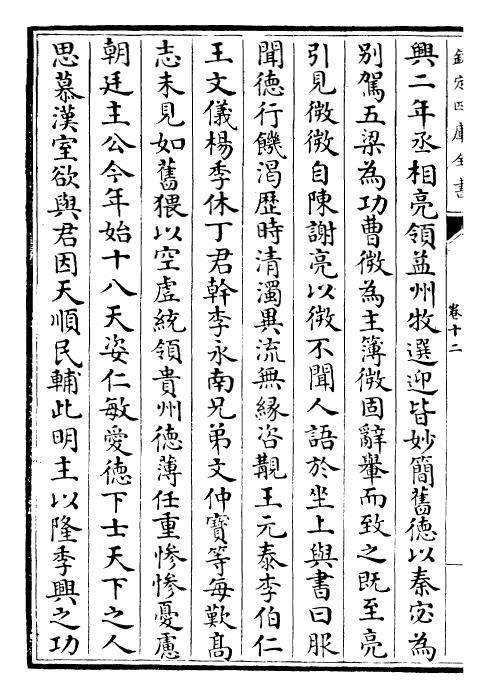 欽定四庫全書
卷十二
興二年丞相亮領益州牧選迎皆妙簡舊德以秦宓為
别駕五梁為功曹微為主簿微固辭轝而致之既至亮
引見微微自陳謝亮以微不聞人語於坐上與書曰服
聞德行饑渴歴時清濁異流無緣咨覯王元泰李伯仁
王文儀楊季休丁君幹李永南兄弟文仲寶等每歎髙
志未見如舊猥以空虚統領貴州德薄任重慘慘憂慮
朝廷主公今年始十八天姿仁敏愛德下士天下之人
思慕漢室欲與君因天順民輔此明主以隆季興之功